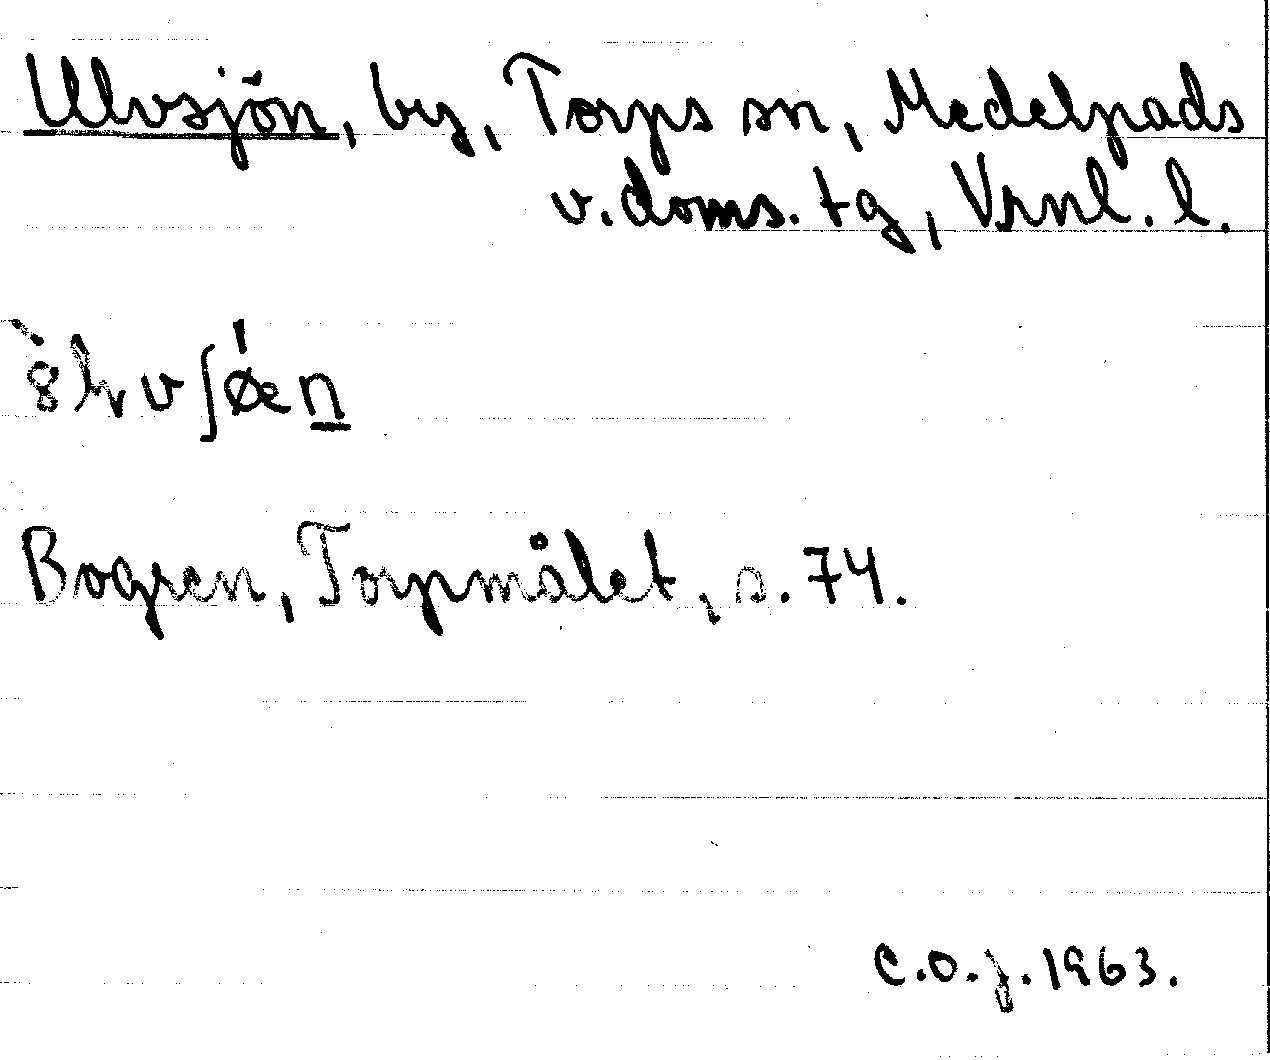 Ulvsjön, by, Torps sn, Medelpads
v. doms. tg, Vrnl. l.
Bogren, Torpmålet, s. 74.
C.O.J. 1963.